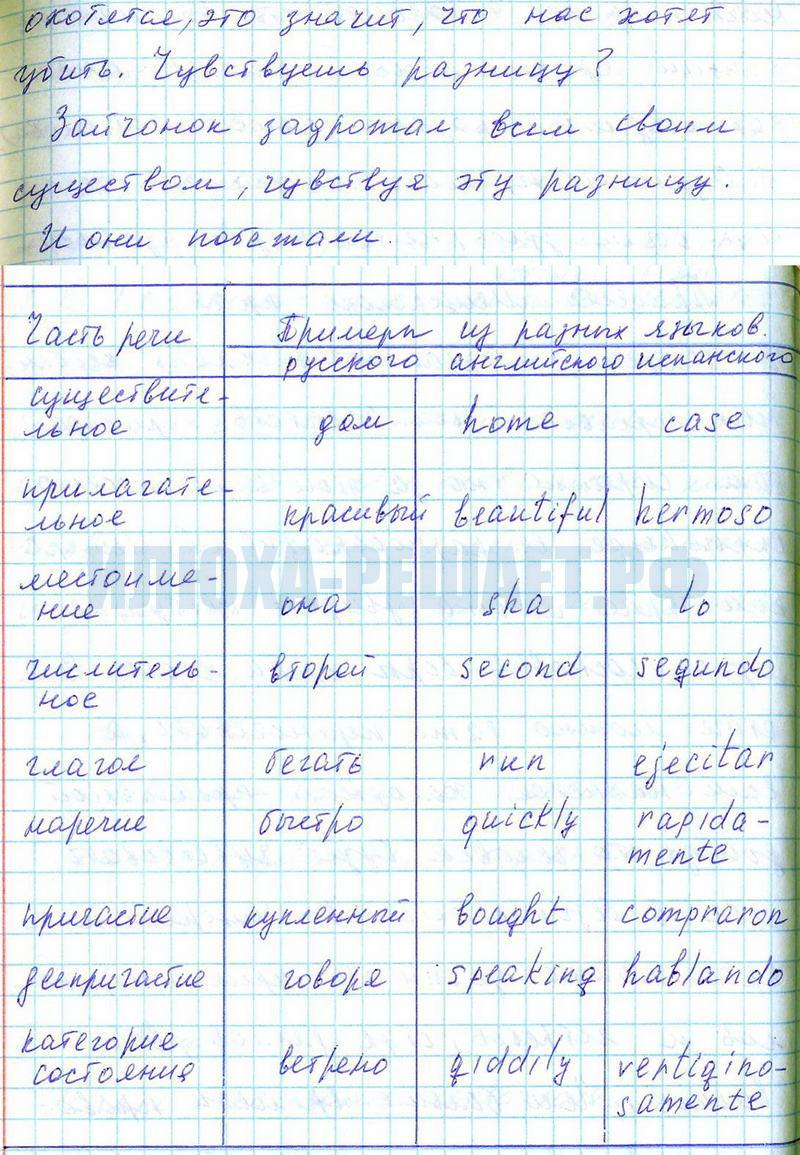 окотятся, это значит, что нас хотят
убить. Чувствуешь разницу?
Зайчонок задрожал всем своим
существом, чувствуя эту разницу.
И они побежали.
Часть речи Примеры из разных языков.
русского английского испанского
существите-
льное дом home case
прилагате-
льное красивый beautiful hermoso
ИЛЮХА-РЕШАЕТ.РФ
местоиме-
ние она sha lo
числитель-
ное второй second segundo
глагол бегать run ejecitar
наречие быстро quickly rapida-
mente
причастие купленный bought compraron
деепричастие говоря speaking hablando
категория
состояния ветрено giddily vertigino-
samente